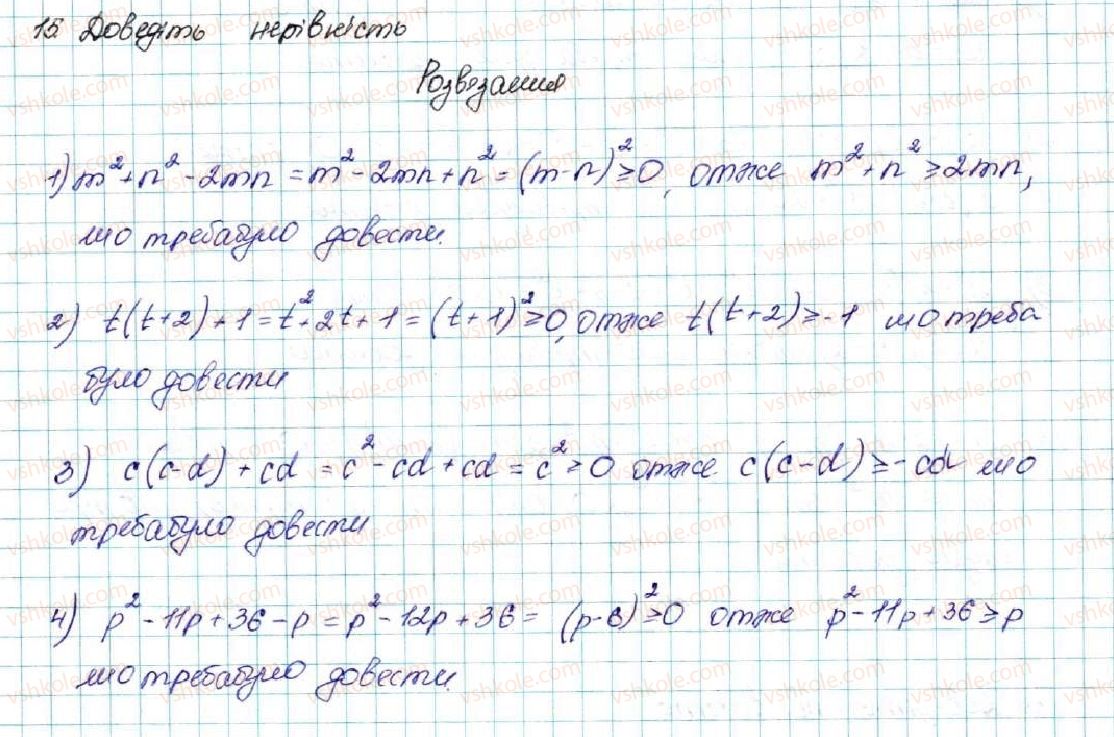 15 Доведіть нерівність
Розвязання
1) m² + n² - 2mn = m² - 2mn + n² = (m-n)² ≥ 0, отже m² + n² ≥ 2mn,
що требабуло довести.
2) t(t+2) + 1 = t² + 2t + 1 = (t+1)² ≥ 0, отже t(t+2) ≥ -1 що треба
було довести
3) c(c-d) + cd = c² - cd + cd = c² ≥ 0 отже c(c-d) ≥ -cd що
требабуло довести
4) p² - 11p + 36 - p = p² - 12p + 36 = (p-6)² ≥ 0 отже p² - 11p + 36 ≥ p
що требабуло довести.